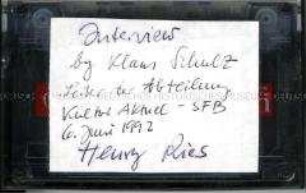 Interview
by Klaus Schulz
Leiter der Abteilung
Kultur Aktuel - SFB
6. Juni 1992
Henry Ries